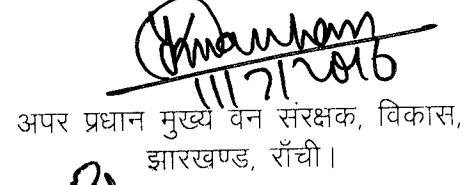 11/7/2016
अपर प्रधान मुख्य वन संरक्षक, विकास,
झारखण्ड, राँची।